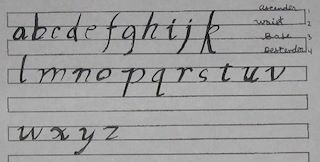 ascender 1
abcdefghijk waist 2
Base 3
Descender 4
lmnopqrstuv
wxyz